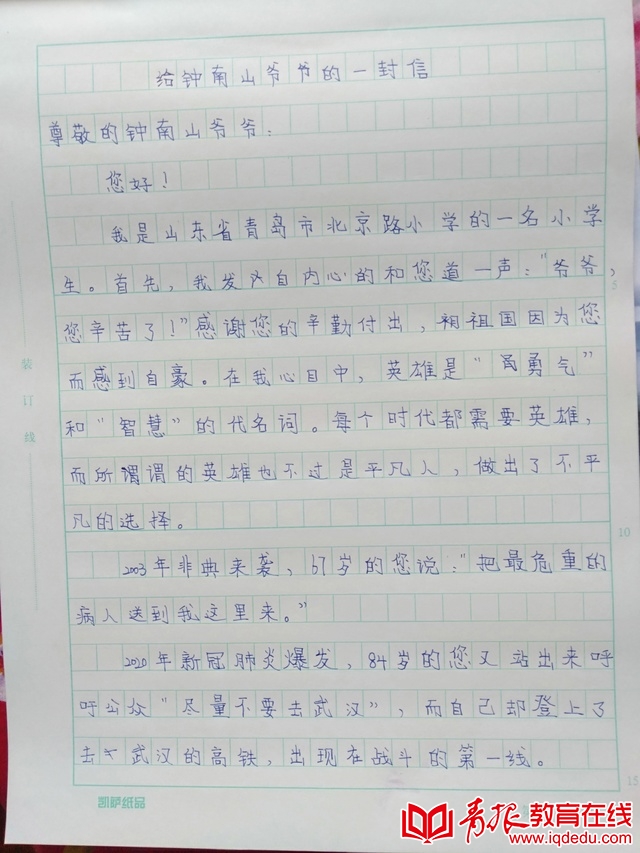 给钟南山爷爷的一封信
尊敬的钟南山爷爷：
您好！
我是山东省青岛市北京路小学的一名小学
生。首先，我发自内心的和您道一声："爷爷，
您辛苦了！"感谢您的辛勤付出，祖国因为您
而感到自豪。在我心目中，英雄是"勇气"
和"智慧"的代名词。每个时代都需要英雄，
而所谓谓的英雄也不过是平凡人，做出了不平
凡的选择。
2003年非典来袭，67岁的您说："把最危重的
病人送到我这里来。"
2020年新冠肺炎爆发，84岁的您又站出来呼
吁公众"尽量不要去武汉"，而自己却登上了
去武汉的高铁，出现在战斗的第一线。
装订线
5
10
15
凯萨纸品
青报教育在线
www.iqdedu.com